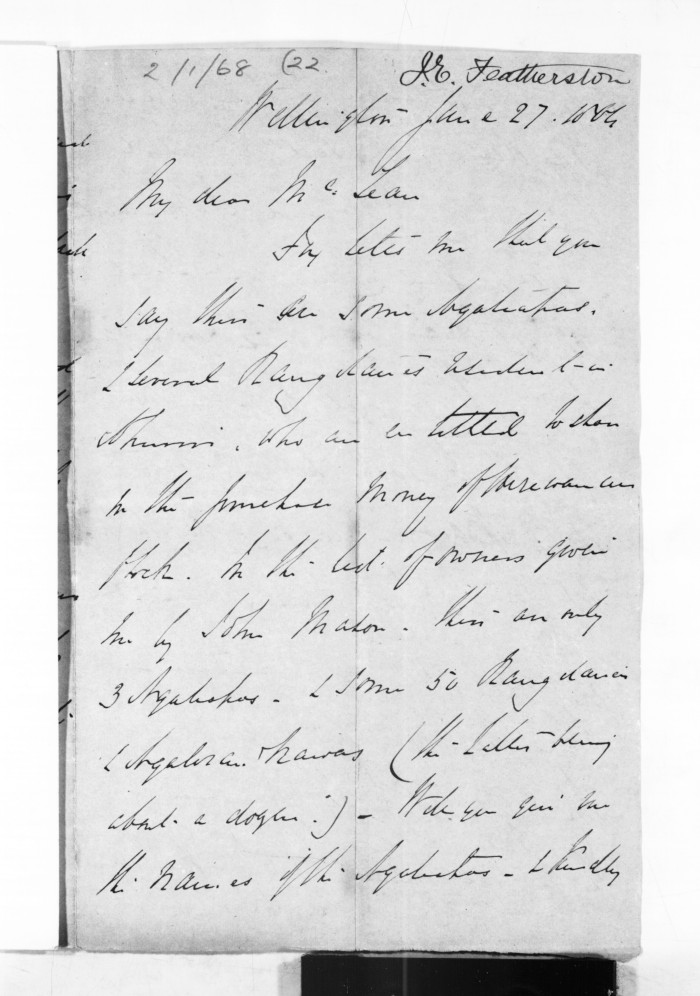 2/1/68 (22
I.E. Featherston
Wellington June 27. 1864
My dear McLean
Fox tells me that you
say there are some Ngatiapas.
& several Rangitanes resident in
Ahuriri, who are entitled to share
in the purchase money of
Block. In the list of owners given
me by John Mason. there are only
3 Ngatiapas - & some 50 Rangitanes
& (the latter being
about a dozen.) - Will you give me
the names of the Ngatiapas - & kindly